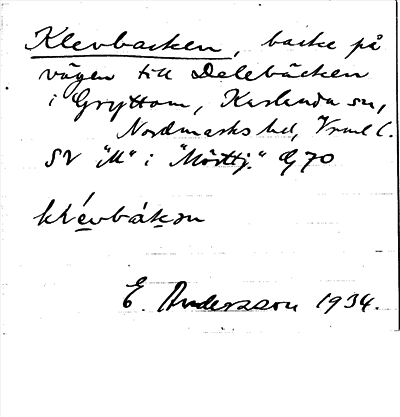 Klevbacken, backe på
vägen till Delebäcken
i Gryttom, Karlanda sn,
Nordmarks hd, Vrml l.
SV "M" i "Mörttj." G 70
klévbákən
E. Andersson 1934.